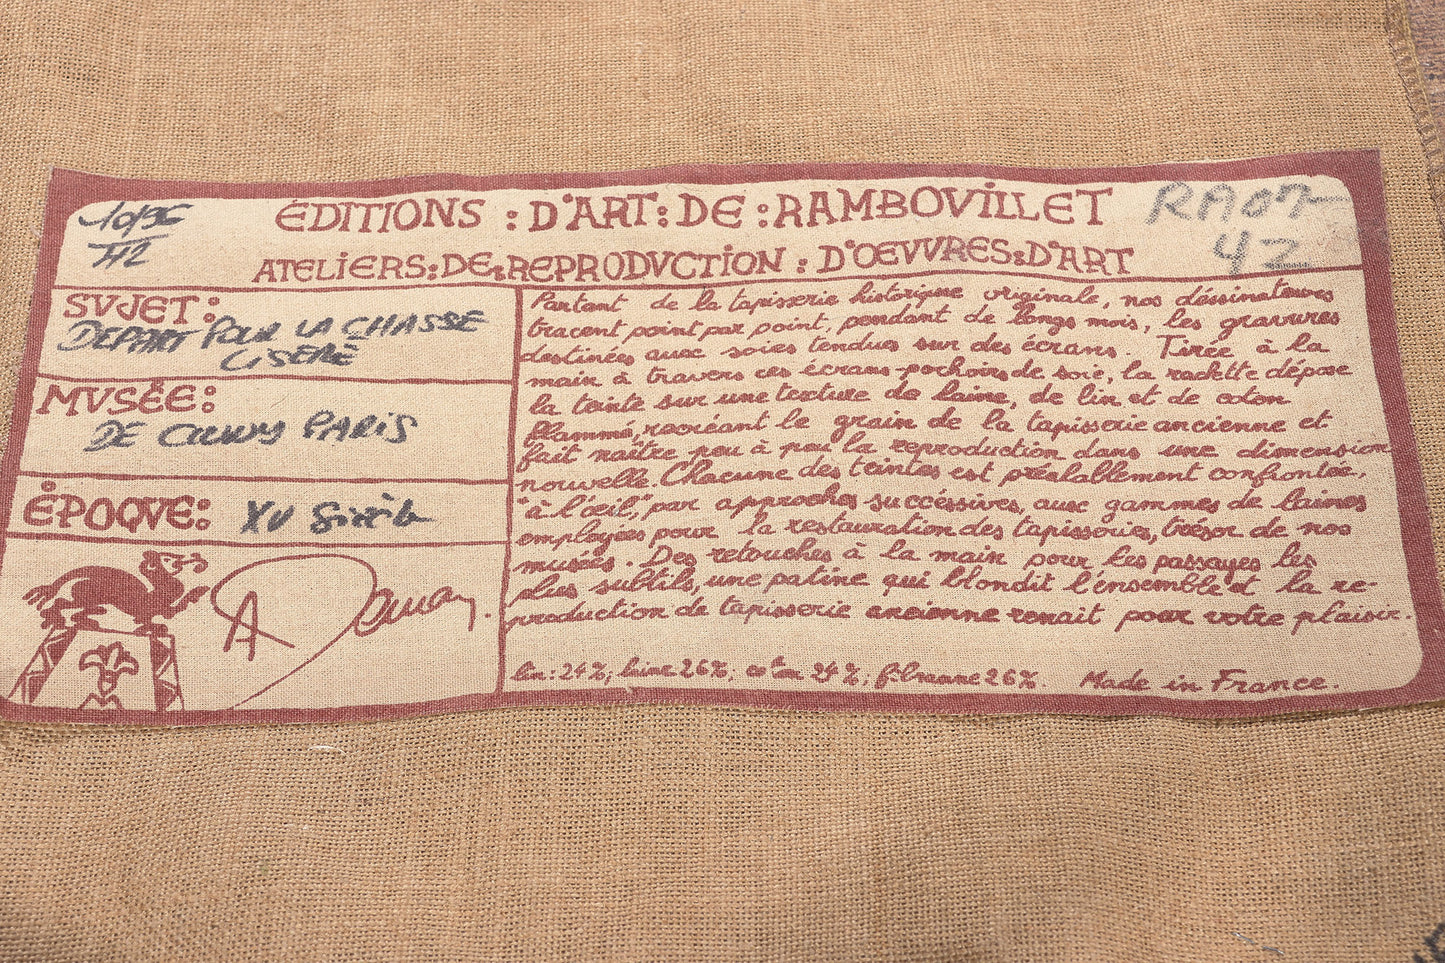 10/96
ÉDITIONS : D'ART : DE : RAMBOVILLET
ATELIERS : DE : REPRODVCTION : D'OEVVRES : D'ART
42
SVJET :
DEPART POUR LA CHASSE
LISERÉ
MVSÉE :
DE CLUNY PARIS
ÉPOQVE :
XV Siècle
A Demay.
Partant de la tapisserie historique originale, nos dessinateurs
tracent point par point, pendant de longs mois, les gravures
destinées aux soies tendues sur des écrans. Tirée à la
main à travers ces écrans-pochoirs de soie, la raclette dépose
la teinte sur une texture de laine, de lin et de coton
flammé, recréant le grain de la tapisserie ancienne et
fait naître peu à peu la reproduction dans une dimension
nouvelle. Chacune des teintes est préalablement confrontée,
"à l'œil", par approches successives, aux gammes de laines
employées pour la restauration des tapisseries, trésor de nos
musées. Des retouches à la main pour les passages les
plus subtils, une patine qui blondit l'ensemble et la re-
production de tapisserie ancienne renait pour votre plaisir.
lin : 24 %; laine 26 %; coton 24 %; fibranne 26 %. Made in France.